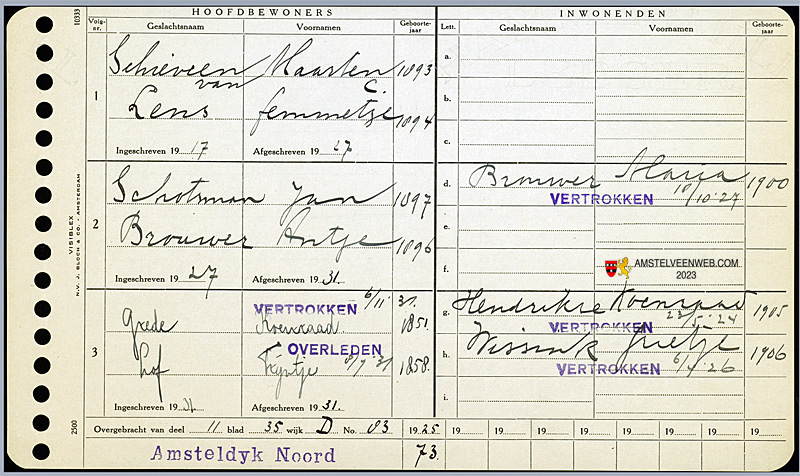 HOOFDBEWONERS
INWONENDEN
Volg-nr.
Geslachtsnaam
Voornamen
Geboorte-jaar
Lett.
Geslachtsnaam
Voornamen
Geboorte-jaar
10333
VISIBLEX
N.V. J. BLOCH & CO. - AMSTERDAM
2500
1
Schieveen Maarten 1893
van C.
Lens Femmetje 1894
Ingeschreven 1917 Afgeschreven 1927
2
Schotsman Jan 1897
Brouwer Antje 1896
Ingeschreven 1927 Afgeschreven 1931.
3
VERTROKKEN 6/11 31.
Grede Koenraad 1851.
OVERLEDEN
Hof Fijntje 31 1858.
Ingeschreven 1931 Afgeschreven 1931.
a.
b.
c.
d. Brouwer Maria 1900
VERTROKKEN 10/10 '27
e.
f.
AMSTELVEENWEB.COM
2023
g. Hendrikse Koenraad 1905
VERTROKKEN '24
h. Wissink Grietje 1906
VERTROKKEN '26
i.
Overgebracht van deel 11 blad 35 wijk D No. 83 1925 19 19 19 19 19 19 19 19
Amsteldyk Noord 73.